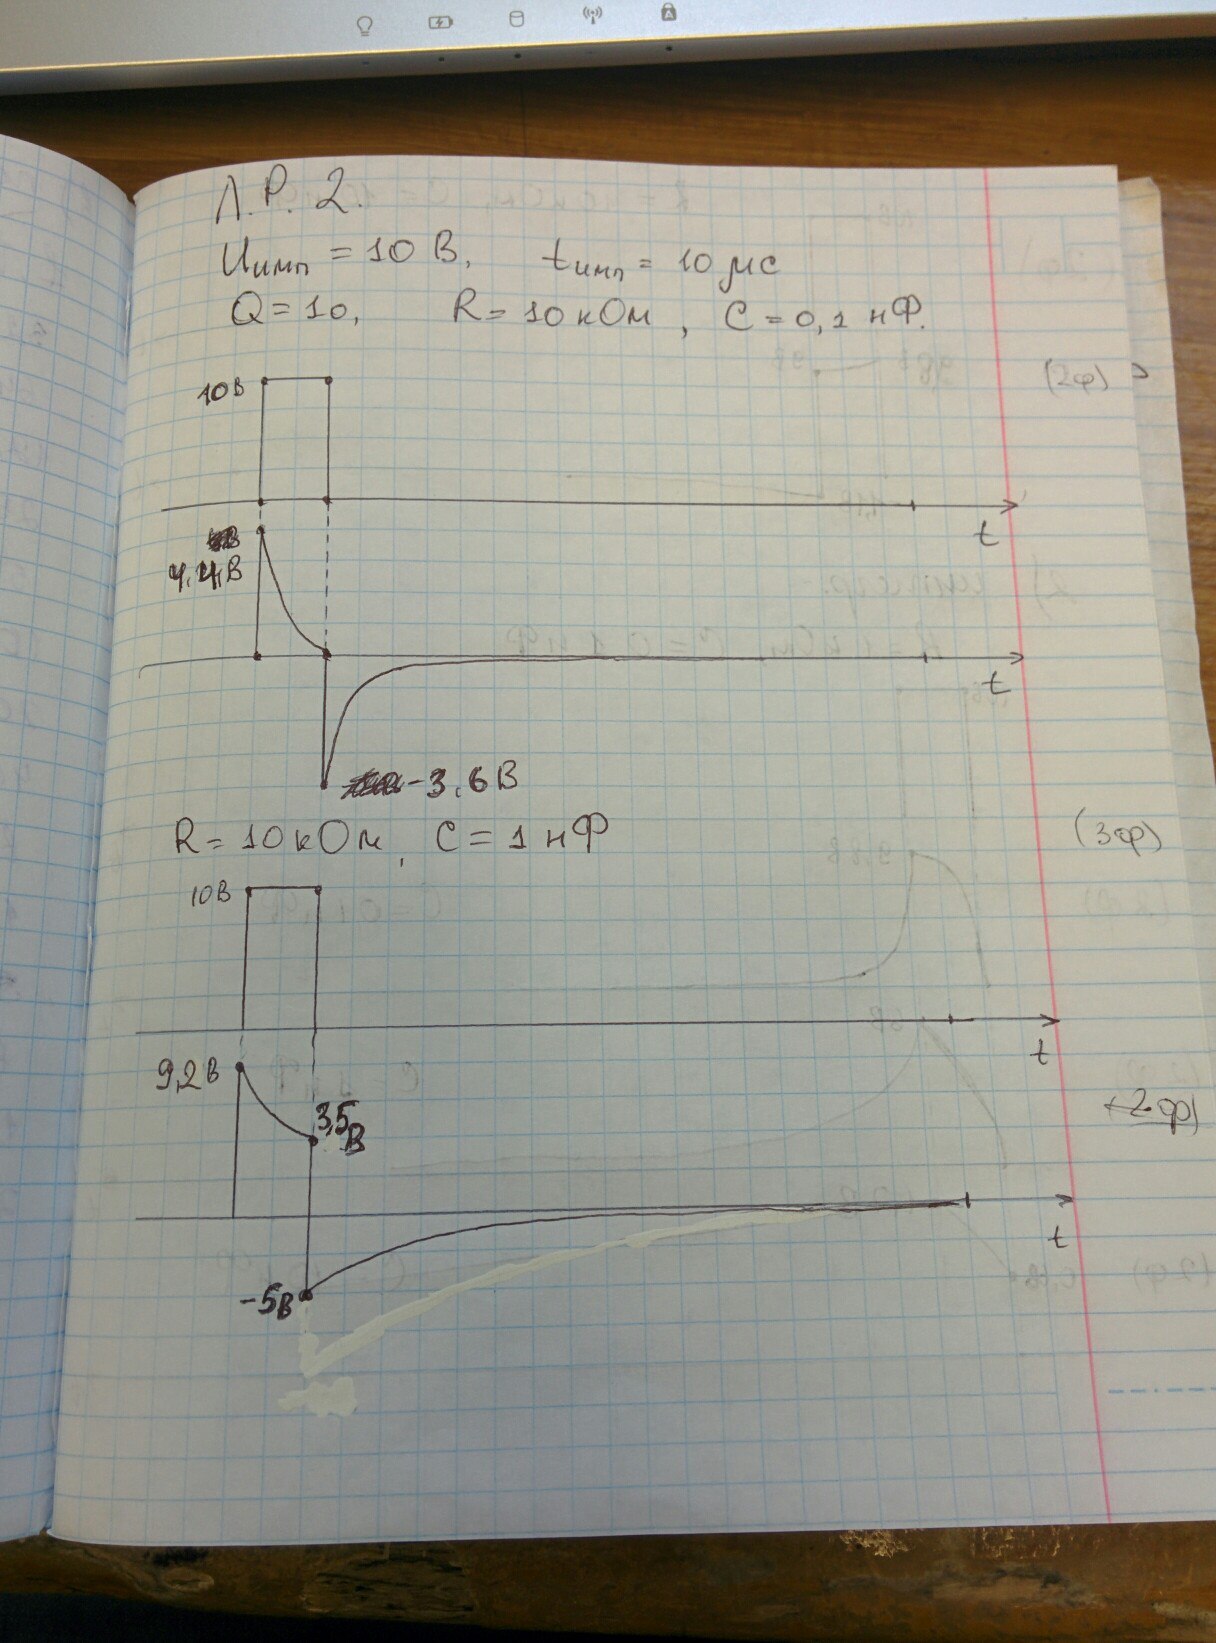 Л.Р. 2.
Uимп = 10 В, tимп = 10 мс
Q = 10, R = 10 кОм, C = 0,1 нФ.
10 В
(2ф)
t
4,4 В
t
-3,6 В
R = 10 кОм, C = 1 нФ
(3ф)
10 В
t
9,2 В
3,5 В
t
-5 В